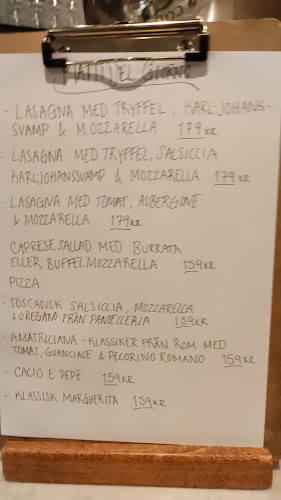 PIATTI DEL GIORNO
- LASAGNA MED TRYFFEL, KARL-JOHANS-
SVAMP & MOZZARELLA 179 KR
- LASAGNA MED TRYFFEL, SALSICCIA
KARLJOHANSSVAMP & MOZZARELLA 179 KR
- LASAGNA MED TOMAT, AUBERGINE
& MOZZARELLA 179 KR
CAPRESESALLAD MED BURRATA
ELLER BUFFELMOZZARELLA 159 KR
PIZZA
- TOSCANSK SALSICCIA, MOZZARELLA
& OREGANO FRÅN PANTELLERIA 159 KR
- AMATRICIANA - KLASSIKER FRÅN ROM MED
TOMAT, GUANCIALE & PECORINO ROMANO 159 KR
- CACIO E PEPE 159 KR
- KLASSISK MARGHERITA 159 KR